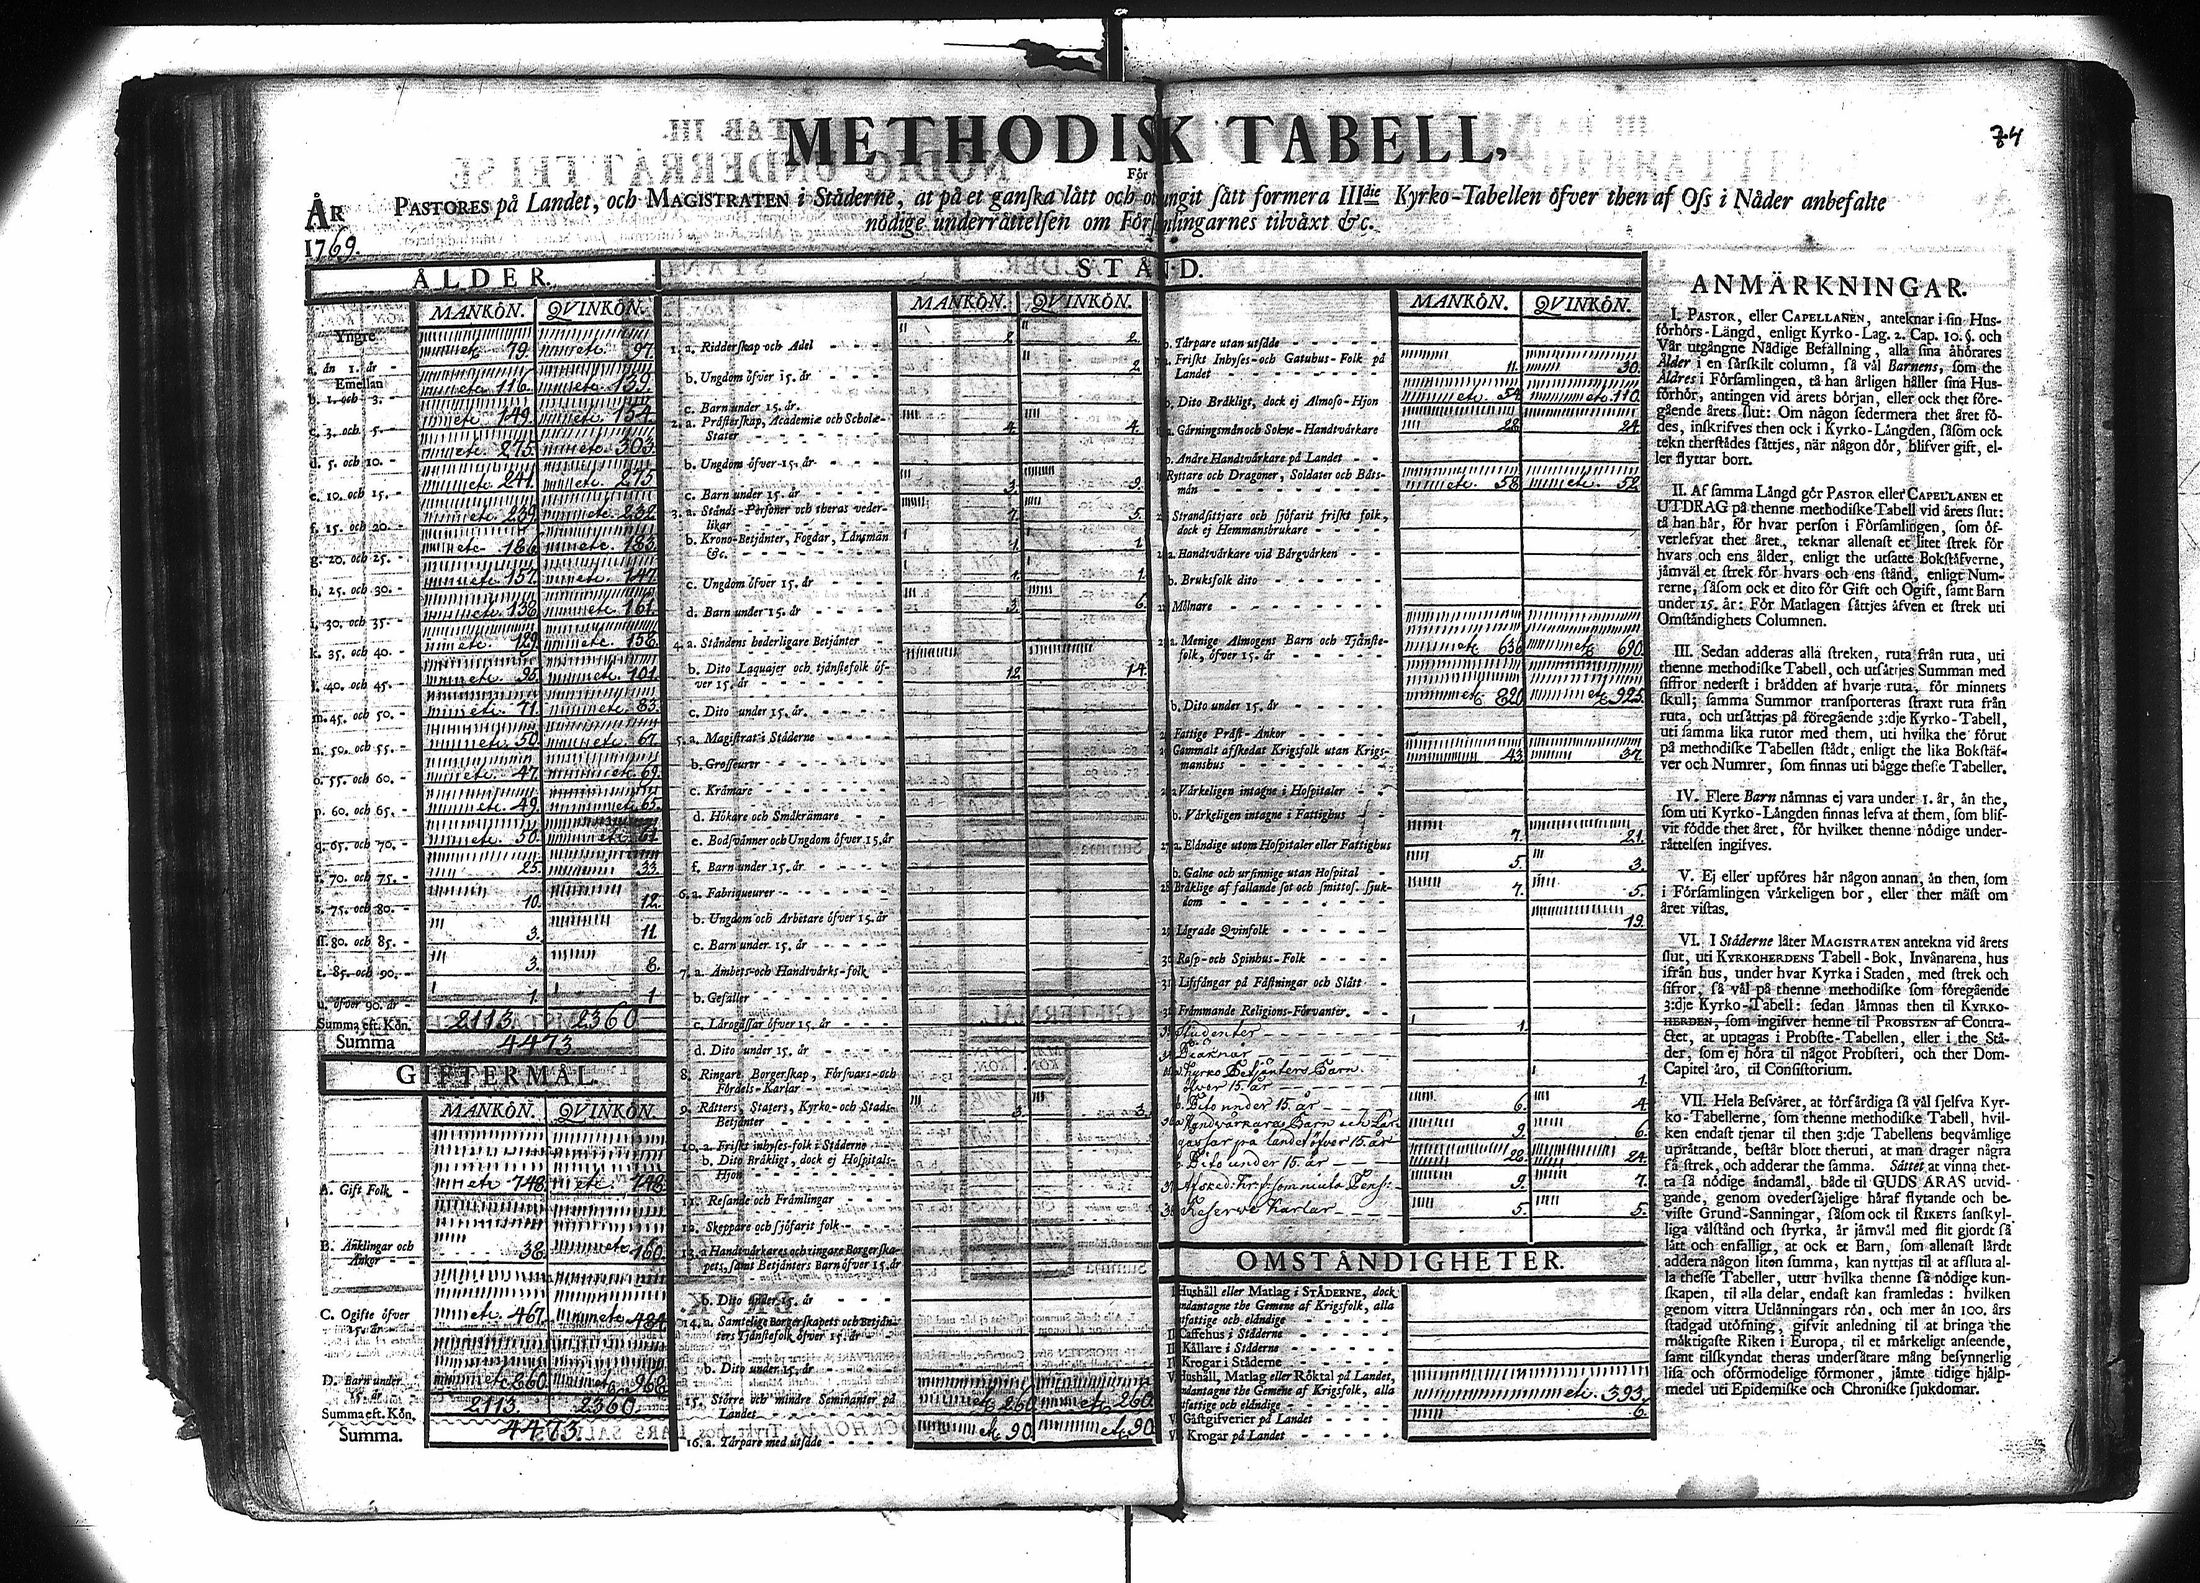 74
METHODISK TABELL,
För
PASTORES på Landet, och MAGISTRATEN i Ståderne, at på et ganska lått och otvungit sått formera IIIdie Kyrko-Tabellen öfver then af Oss i Nåder anbefalte
nödige underrättelsen om Församlingarnes tilvåxt &c.
ÅR
1769.
ÅLDER.
MANKÖN. QVINKÖN.
Yngre
a. ån 1. år - 79. 97.
Emellan
b. 1. och 3. - 116. 139.
c. 3. och 5. - 149. 154.
d. 5. och 10. - 275. 303.
e. 10. och 15. - 241. 275
f. 15. och 20. - 239. 232.
g. 20. och 25. - 186. 183.
h. 25. och 30. - 157. 147.
i. 30. och 35. - 138. 161.
k. 35. och 40. - 129. 158.
l. 40. och 45. - 95. 101.
m. 45. och 50. - 71. 83.
n. 50. och 55. - 50. 67.
o. 55. och 60. - 47. 69.
p. 60. och 65. - 49. 65.
q. 65. och 70. - 50. 61.
r. 70. och 75. - 25. 33.
s. 75. och 80. - 10. 12.
ss. 80. och 85. - 3. 11.
t. 85. och 90. - 3. 8.
u. öfver 90. år - 1. 1
Summa eft. Kön. 2113. 2360
Summa 4473
GIFTERMÅL.
MANKÖN. QVINKÖN.
A. Gift Folk - 748. 748.
B. Änklingar och
Änkor - - 38. 160.
C. Ogifte öfver
15. år - - 467. 484.
D. Barn under
15. år - 860. 968.
Summa eft. Kön. 2113. 2360.
Summa. 4473.
STÅND.
MANKÖN. QVINKÖN.
1. a. Ridderskap och Adel 2. 2.
b. Ungdom öfver 15. år 2.
c. Barn under 15. år.
2. a. Pråsterskap, Academiæ och Scholæ-
Stater 4. 4.
b. Ungdom öfver 15. år
c. Barn under 15. år 3. 9.
3. a. Stånds-Personer och theras veder-
likar 7. 5.
b. Krono-Betjänter, Fogdar, Länsmån
&c. 1. 1
c. Ungdom öfver 15. år 1. 1
d. Barn under 15. år 3. 6.
4. a. Ståndens hederligare Betjänter
b. Dito Laquajer och tjånstefolk öf-
ver 15. år 12. 14.
c. Dito under 15. år.
5. a. Magistrat i Städerne
b. Grosseurer
c. Kråmare
d. Hökare och Småkråmare
e. Bodsvånner och Ungdom öfver 15. år
f. Barn under 15. år
6. a. Fabriqueurer
b. Ungdom och Arbetare öfver 15. år
c. Barn under 15. år
7. a. Ämbets- och Handtvårks-folk
b. Gesåller
c. Lärogåssar öfver 15. år
d. Dito under 15. år
8. Ringare Borgerskap, Försvars- och
Fördels-Karlar
9. Råtters, Staters, Kyrko- och Stads-
Betjänter 3. 3.
10. a. Friskt inhyses-folk i Ståderne
b. Dito Bråkligt, dock ej Hospitals-
Hjon
11. Resande och Främlingar
12. Skeppare och sjöfarit folk
13. a. Handtvårkares och ringare Borgerska-
pets, samt Betjänters Barn öfver 15. år
b. Dito under 15. år
14. a. Samtelige Borgerskapets och Betjän-
ters Tjånstefolk öfver 15. år
b. Dito under 15. år
15. Större och mindre Seminanter på
Landet 260 260.
16. a. Tårpare med utsåde 90 90
MANKÖN. QVINKÖN.
b. Tårpare utan utsåde
Friskt Inhyses- och Gatuhus-Folk på
Landet 11. 30.
b. Dito Bråkligt, dock ej Almoso-Hjon 54. 110.
a. Gårningsmån och Sokne-Handtvårkare 28. 24.
b. Andre Handtvårkare på Landet
Ryttare och Dragoner, Soldater och Båts-
mån 58. 52.
Strandsittjare och sjöfarit friskt folk,
dock ej Hemmansbrukare
a. Handtvårkare vid Bårgvårken
b. Bruksfolk dito
Mölnare
a. Menige Almogens Barn och Tjånste-
folk, öfver 15. år 636 690.
b. Dito under 15. år 820 925.
Fattige Pråst-Ånkor
Gammalt afskedat Krigsfolk utan Krigs-
manshus 43. 37.
a. Vårkeligen intagne i Hospitaler
b. Vårkeligen intagne i Fattighus
27. a. Elåndige utom Hospitaler eller Fattighus 7. 21.
b. Galne och ursinnige utan Hospital 5. 3.
28. Bråklige af fallande sot och smittos. sjuk-
dom 7. 5.
Lågrade Qvinfolk 19.
30. Rasp- och Spinhus-Folk
31. Lifsfångar på Fåstningar och Slått
32. Främmande Religions-Förvanter.
Studenter 1.
Diäknar
a. Kyrko Betjänters Barn
öfver 15. år 1.
b. Dito under 15. år 6. 4.
a. Handvårkares Barn och Lär-
gåssar på landet öfver 15. år 9. 6.
b. Dito under 15. år 28. 24.
Afsked. kr: f: som niuta Pens: 9. 7.
Reserve karlar 5. 5.
OMSTÅNDIGHETER.
Hushåll eller Matlag i STÅDERNE, dock
undantagne the Gemene af Krigsfolk, alla
utfattige och elåndige
Caffehus i Ståderne
Kållare i Ståderne
Krogar i Ståderne
Hushåll, Matlag eller Röktal på Landet,
undantagne the Gemene af Krigsfolk, alla
utfattige och elåndige 393.
Gåstgifverier på Landet 6.
Krogar på Landet
ANMÄRKNINGAR.
I. PASTOR, eller CAPELLANEN, anteknar i sin Hus-
förhörs-Långd, enligt Kyrko-Lag. 2. Cap. 10. §. och
Vår utgångne Nådige Befallning, alla sina åhörares
Ålder i en sårskilt column, så vål Barnens, som the
Åldres i Församlingen, tå han årligen håller sina Hus-
förhör, antingen vid årets början, eller ock thet före-
gående årets slut: Om någon sedermera thet året fö-
des, inskrifves then ock i Kyrko-Långden, såsom ock
tekn therstådes såttjes, når någon dör, blifver gift, el-
ler flyttar bort.
II. Af samma Långd gör PASTOR eller CAPELLANEN et
UTDRAG på thenne methodiske Tabell vid årets slut:
tå han hår, för hvar person i Församlingen, som öf-
verlefvat thet året, teknar allenast et litet strek för
hvars och ens ålder, enligt the utsatte Bokståfverne,
jåmvål et strek för hvars och ens stånd, enligt Num-
rerne, såsom ock et dito för Gift och Ogift, samt Barn
under 15. år: För Matlagen såttjes åfven et strek uti
Omståndighets Columnen.
III. Sedan adderas alla streken, ruta från ruta, uti
thenne methodiske Tabell, och utsåttjes Summan med
siffror nederst i brådden af hvarje ruta, för minnets
skull; samma Summor transporteras straxt ruta från
ruta, och utsåttjas på föregående 3:dje Kyrko-Tabell,
uti samma lika rutor med them, uti hvilka the förut
på methodiske Tabellen stådt, enligt the lika Bokståf-
ver och Numrer, som finnas uti bågge thesse Tabeller.
IV. Flere Barn nåmnas ej vara under 1. år, ån the,
som uti Kyrko-Långden finnas lefva af them, som blif-
vit födde thet året, för hvilket thenne nödige under-
råttelsen ingifves.
V. Ej eller upföres hår någon annan, ån then, som
i Församlingen vårkeligen bor, eller ther måst om
året vistas.
VI. I Ståderne låter MAGISTRATEN antekna vid årets
slut, uti KYRKOHERDENS Tabell-Bok, Invånarena, hus
ifrån hus, under hvar Kyrka i Staden, med strek och
sifror, så vål på thenne methodiske som föregående
3:dje Kyrko-Tabell: sedan låmnas then til KYRKO-
HERDEN, som ingifver henne til PROBSTEN af Contra-
ctet, at uptagas i Probste-Tabellen, eller i the Stå-
der, som ej höra til något Probsteri, och ther Dom-
Capitel åro, til Consistorium.
VII. Hela Besvåret, at förfårdiga så vål sjelfva Kyr-
ko-Tabellerne, som thenne methodiske Tabell, hvil-
ken endast tjenar til then 3:dje Tabellens beqvåmlige
upråttande, beståt blott theruti, at man drager några
få strek, och adderar the samma. Såttet at vinna thet-
ta så nödige åndamål, både til GUDS ÅRAS utvid-
gande, genom ovedersåjelige håraf flytande och be-
viste Grund-Sanningar, såsom ock til RIKETS sanskyl-
liga vålstånd och styrka, år jåmvål med flit gjordt så
lått och enfalligt, at ock et Barn, som allenast lårdt
addera någon liten summa, kan nyttjas til at afsluta al-
la thesse Tabeller, utur hvilka thenne så nödige kun-
skapen, til alla delar, endast kan framledas: hvilken
genom vittra Utlånningars rön, och mer ån 100. års
stadgad utöfning, gifvit anledning til at bringa the
måktigaste Riken i Europa, til et mårkeligt anseende,
samt tilskyndat theras undersåtare mång besynnerlig
lisa och oförmodelige förmoner, jåmte tidige hjålp-
medel uti Epidemiske och Chroniske sjukdomar.